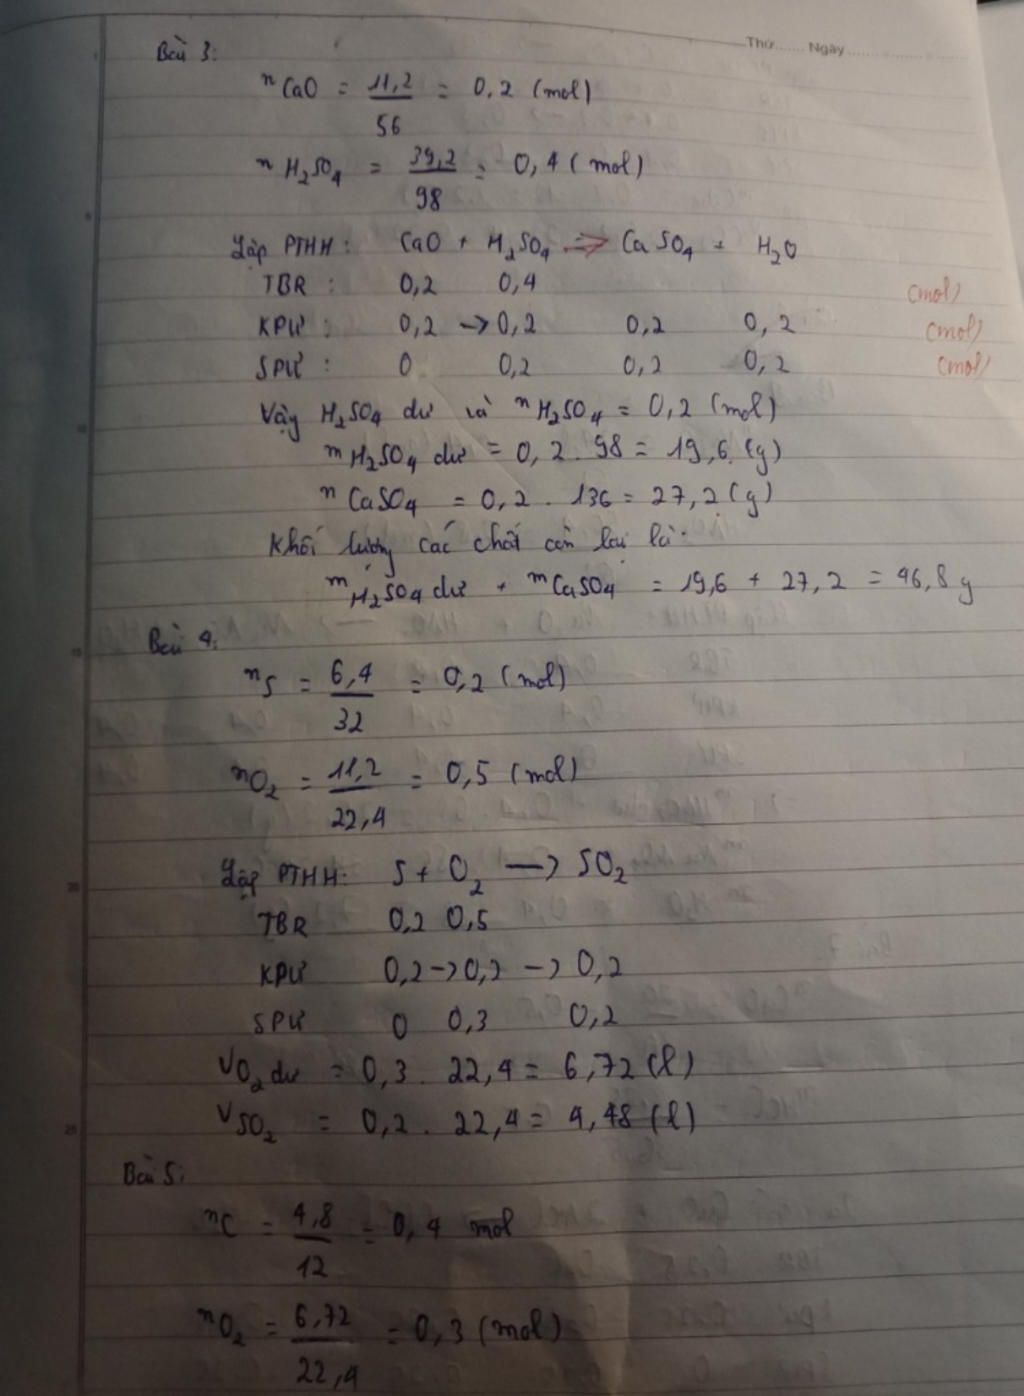 Thứ...... Ngày......................
Bài 3:
nCaO = 11,2/56 = 0,2 (mol)
nH2SO4 = 39,2/98 = 0,4 (mol)
Lập PTHH: CaO + H2SO4 => CaSO4 + H2O
TBR : 0,2 0,4 (mol)
KPƯ : 0,2 -> 0,2 0,2 0,2 (mol)
SPƯ : 0 0,2 0,2 0,2 (mol)
Vậy H2SO4 dư và nH2SO4 = 0,2 (mol)
mH2SO4 dư = 0,2 . 98 = 19,6 (g)
nCaSO4 = 0,2 . 136 = 27,2 (g)
Khối lượng các chất còn lại là:
mH2SO4 dư + mCaSO4 = 19,6 + 27,2 = 46,8 g
Bài 4:
nS = 6,4/32 = 0,2 (mol)
nO2 = 11,2/22,4 = 0,5 (mol)
Lập PTHH: S + O2 -> SO2
TBR 0,2 0,5
KPƯ 0,2 -> 0,2 -> 0,2
SPƯ 0 0,3 0,2
VO2 dư = 0,3 . 22,4 = 6,72 (l)
VSO2 = 0,2 . 22,4 = 4,48 (l)
Bài 5:
nC = 4,8/12 = 0,4 mol
nO2 = 6,72/22,4 = 0,3 (mol)